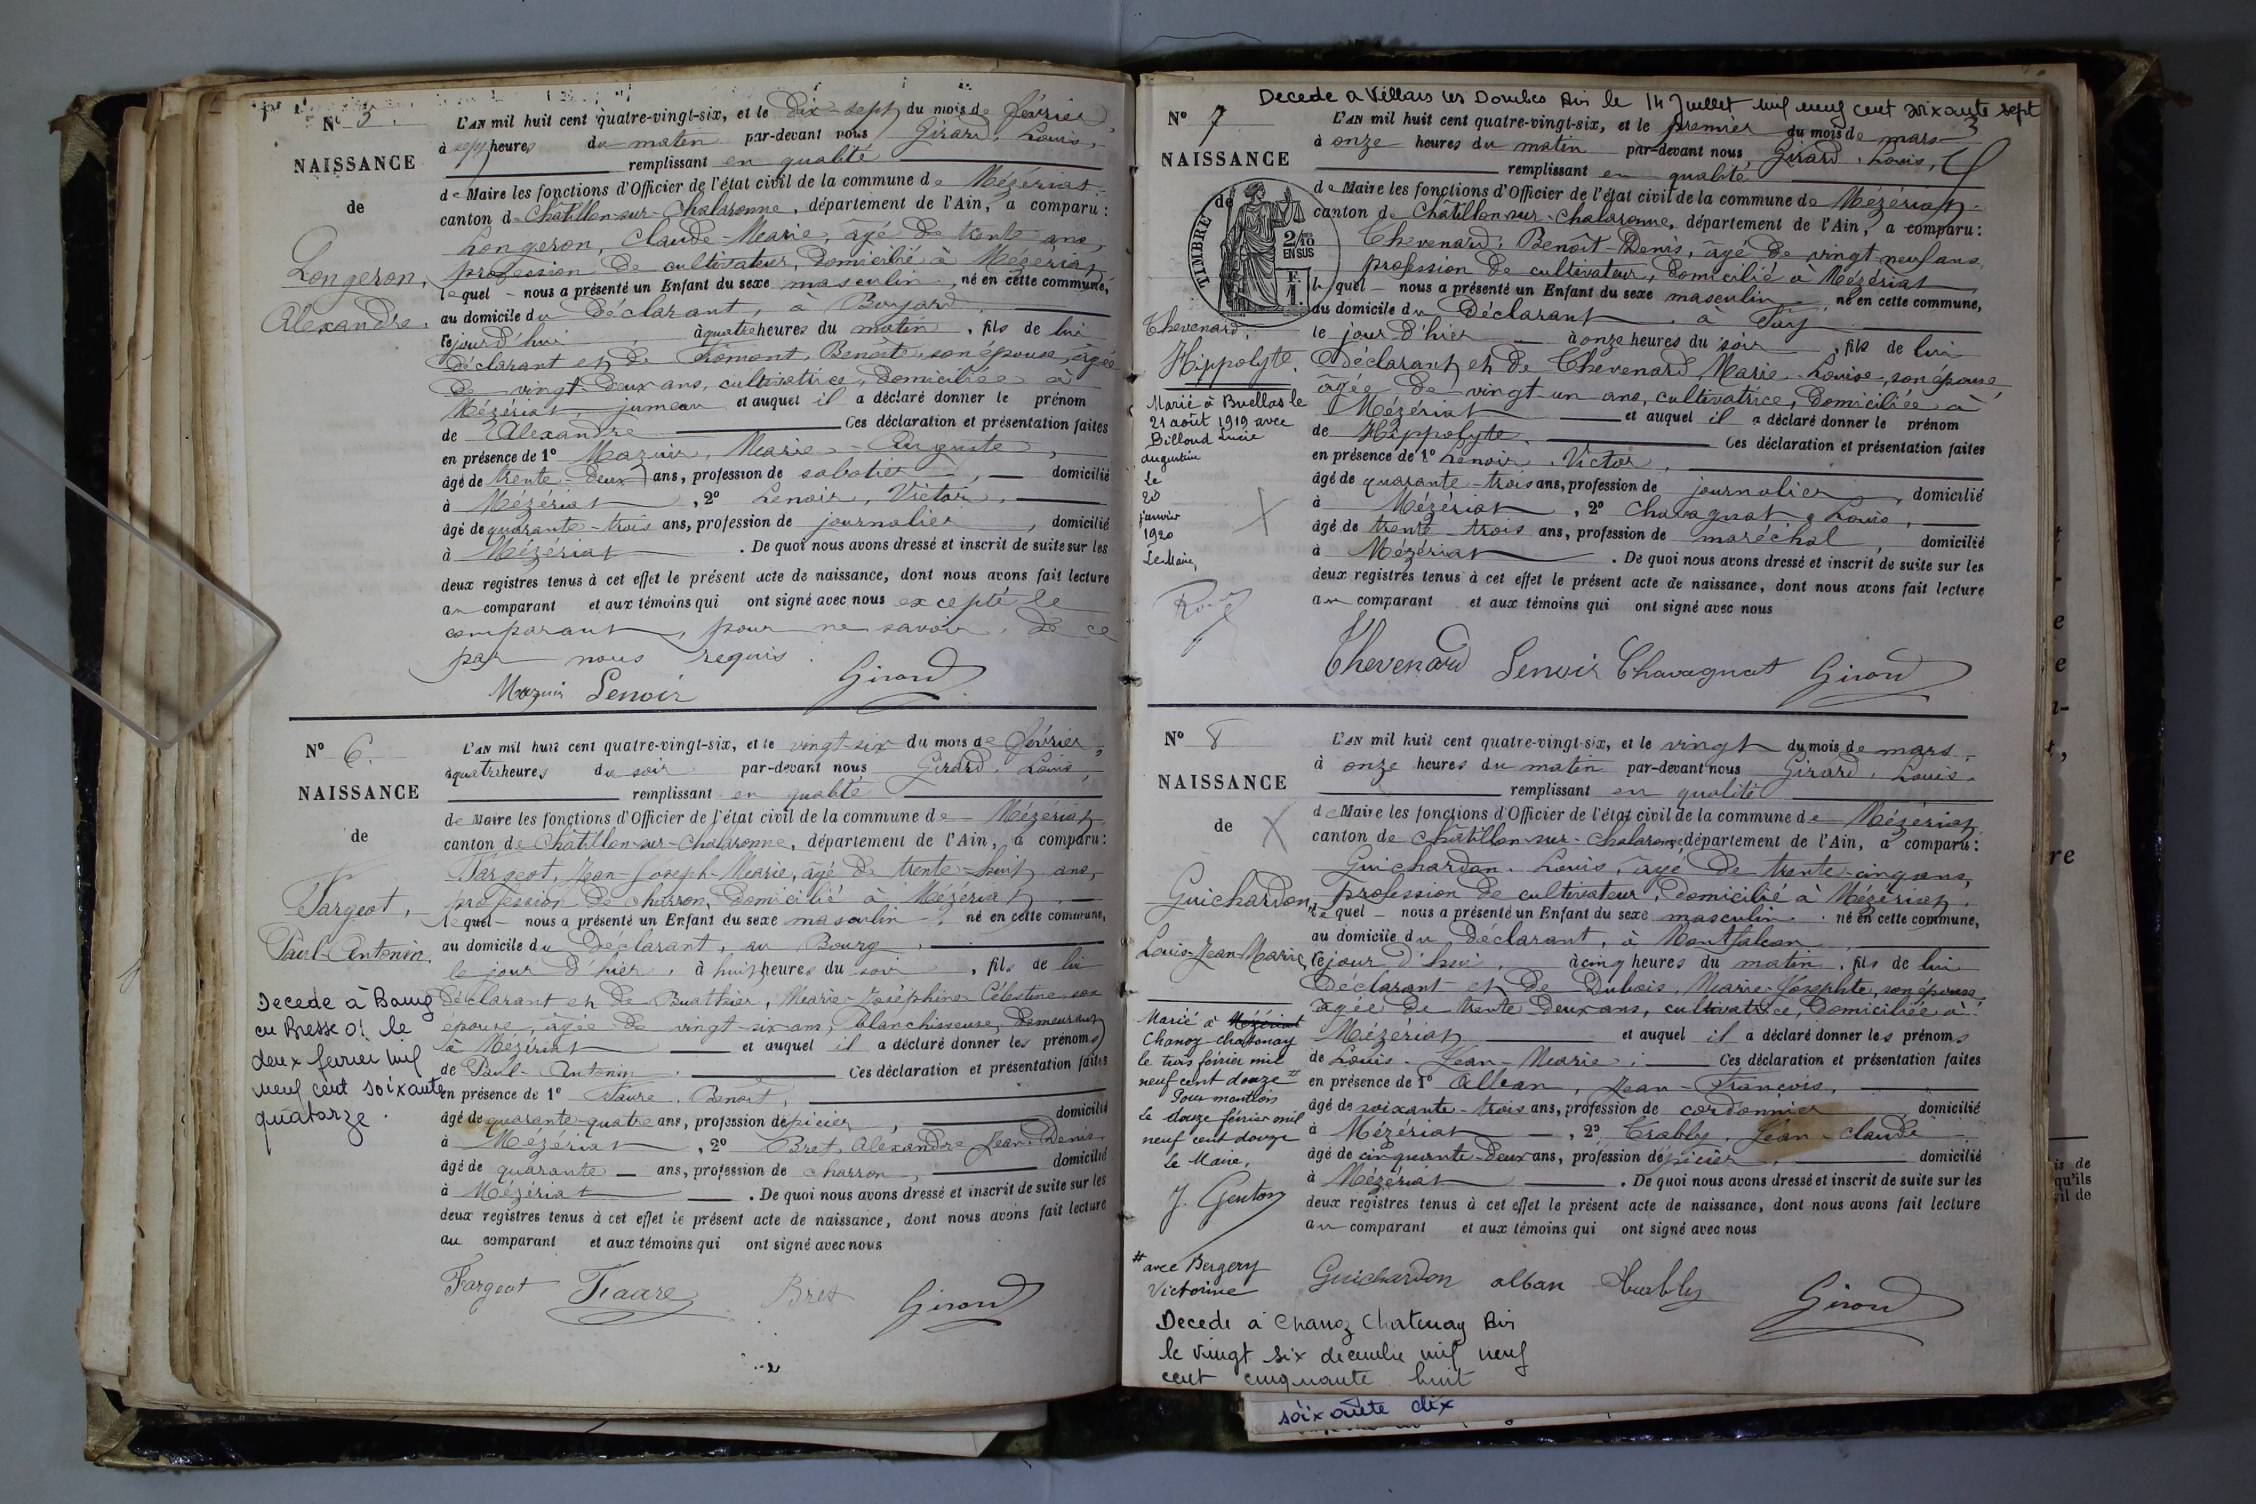 N° 5.
NAISSANCE
de
Longeron,
Alexandre.
L'AN mil huit cent quatre-vingt-six, et le dix-sept du mois de février,
à sept heures du matin par-devant nous Girard, Louis,
remplissant en qualité
de Maire les fonctions d'Officier de l'état civil de la commune de Mézériat.
canton de Châtillon-sur-Chalaronne, département de l'Ain, a comparu:
Longeron, Claude-Marie, âgé de trente ans,
profession de cultivateur, domicilié à Mézériat,
lequel nous a présenté un Enfant du sexe masculin, né en cette commune,
au domicile du déclarant, à
le jour d'hui, à quatre heures du matin, fils de lui
déclarant et de Benoîte, son épouse, âgée
de vingt-deux ans, cultivatrice, domiciliée à
Mézériat, jumeau et auquel il a déclaré donner le prénom
de Alexandre Ces déclaration et présentation faites
en présence de 1° Mazuir, Marie-Auguste,
âgé de trente-deux ans, profession de sabotier, domicilié
à Mézériat, 2° Lenoir, Victor,
âgé de quarante-trois ans, profession de journalier, domicilié
à Mézériat. De quoi nous avons dressé et inscrit de suite sur les
deux registres tenus à cet effet le présent acte de naissance, dont nous avons fait lecture
au comparant et aux témoins qui ont signé avec nous excepté le
comparant, pour ne savoir, de ce
par nous requis.
Mazuir Lenoir Girard
N° 6.
NAISSANCE
de
Fargeot,
Paul-Antonin.
Decede à Bourg
en Bresse 01 le
deux fevrier mil
neuf cent soixante
quatorze.
L'AN mil huit cent quatre-vingt-six, et le vingt-six du mois de février,
à quatre heures du soir par-devant nous Girard, Louis,
remplissant en qualité
de Maire les fonctions d'Officier de l'état civil de la commune de Mézériat,
canton de Châtillon-sur-Chalaronne, département de l'Ain, a comparu:
Fargeot, Jean-Joseph-Marie, âgé de trente-huit ans,
profession de charron, domicilié à Mézériat,
lequel nous a présenté un Enfant du sexe masculin, né en cette commune,
au domicile du déclarant, au Bourg,
le jour d'hier, à huit heures du soir, fils de lui
déclarant et de Buathier, Marie-Joséphine Célestine son
épouse, âgée de vingt-six ans, blanchisseuse, demeurant
à Mézériat et auquel il a déclaré donner les prénoms
de Paul-Antonin. Ces déclaration et présentation faites
en présence de 1° Faure, Benoît,
âgé de quarante-quatre ans, profession d'épicier, domicilié
à Mézériat, 2° Bret, Alexandre Jean-Denis,
âgé de quarante ans, profession de charron, domicilié
à Mézériat. De quoi nous avons dressé et inscrit de suite sur les
deux registres tenus à cet effet le présent acte de naissance, dont nous avons fait lecture
au comparant et aux témoins qui ont signé avec nous
Fargeot Faure Bret Girard
Decede à Villars les Dombes Ain le 14 Juillet mil neuf cent soixante sept
N° 7
NAISSANCE
de
TIMBRE
2/10
EN SUS
F.
1.
Thevenard,
Hippolyte.
Marié à Buellas le
21 août 1919 avec
Billoud Lucie
Augustine
Le
20
janvier
1920
Le Maire,
L'AN mil huit cent quatre-vingt-six, et le premier du mois de mars
à onze heures du matin par-devant nous, Girard, Louis,
remplissant en qualité
de Maire les fonctions d'Officier de l'état civil de la commune de Mézériat,
canton de Châtillon-sur-Chalaronne, département de l'Ain, a comparu:
Thevenard, Benoît-Denis, âgé de vingt neuf ans,
profession de cultivateur, domicilié à Mézériat,
lequel nous a présenté un Enfant du sexe masculin, né en cette commune,
au domicile du Déclarant, à
le jour d'hier à onze heures du soir, fils de lui
Déclarant et de Thevenard Marie-Louise, son épouse,
âgée de vingt un ans, cultivatrice, domiciliée à
Mézériat et auquel il a déclaré donner le prénom
de Hippolyte. Ces déclaration et présentation faites
en présence de 1° Lenoir, Victor,
âgé de quarante-trois ans, profession de journalier, domicilié
à Mézériat, 2° Chavagnat, Louis,
âgé de trente-trois ans, profession de maréchal, domicilié
à Mézériat. De quoi nous avons dressé et inscrit de suite sur les
deux registres tenus à cet effet le présent acte de naissance, dont nous avons fait lecture
au comparant et aux témoins qui ont signé avec nous
Thevenard Lenoir Chavagnat Girard
N° 8
NAISSANCE
de
Guichardon,
Louis-Jean-Marie,
Marié à Mézériat
Chanoz Chatenay
le trois février mil
neuf cent douze #
Pour mention
le douze février mil
neuf cent douze
Le Maire,
J. Genton
# avec Bergery
Victorine
Decede à Chanoz Chatenay Ain
le vingt six decembre mil neuf
cent cinquante huit
L'AN mil huit cent quatre-vingt-six, et le vingt du mois de mars,
à onze heures du matin par-devant nous Girard, Louis.
remplissant en qualité
de Maire les fonctions d'Officier de l'état civil de la commune de Mézériat,
canton de Châtillon-sur-Chalaronne, département de l'Ain, a comparu:
Guichardon, Louis, âgé de trente-cinq ans,
profession de cultivateur, domicilié à Mézériat,
lequel nous a présenté un Enfant du sexe masculin, né en cette commune,
au domicile du Déclarant, à Montfalcon,
le jour d'hui, à cinq heures du matin, fils de lui
Déclarant et de Dubois, Marie-Josephte, son épouse,
âgée de trente deux ans, cultivatrice, domiciliée à
Mézériat et auquel il a déclaré donner les prénoms
de Louis-Jean-Marie. Ces déclaration et présentation faites
en présence de 1° Alban, Jean-François,
âgé de soixante-trois ans, profession de cordonnier domicilié
à Mézériat, 2° Trably, Jean-Claude
âgé de cinquante-deux ans, profession d'épicier, domicilié
à Mézériat. De quoi nous avons dressé et inscrit de suite sur les
deux registres tenus à cet effet le présent acte de naissance, dont nous avons fait lecture
au comparant et aux témoins qui ont signé avec nous
Guichardon alban Trably Girard
soixante dix
is de
qu'ils
il de